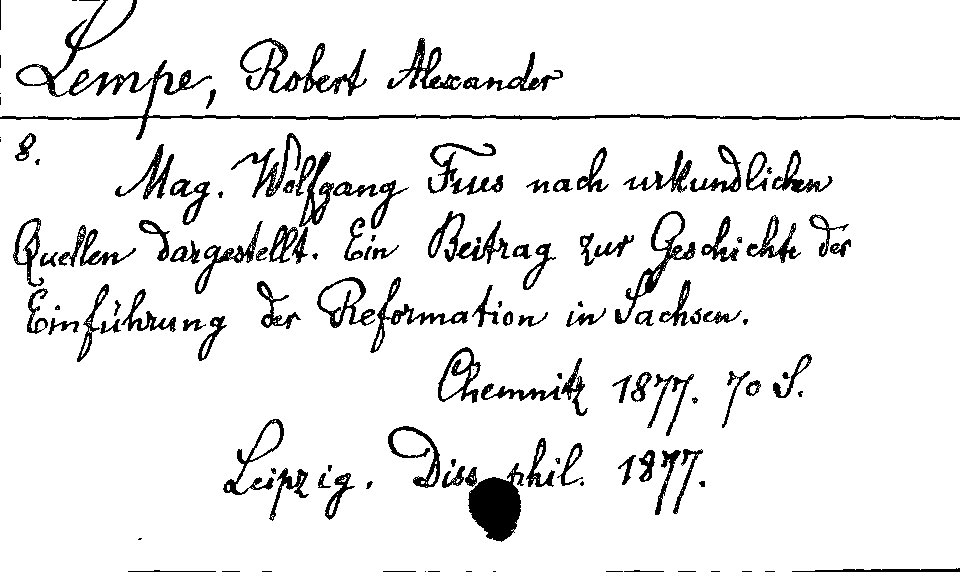 Lempe, Robert Alexander
8.
Mag. Wolfgang Fues nach urkundlichen
Quellen dargestellt. Ein Beitrag zur Geschichte der
Einführung der Reformation in Sachsen.
Chemnitz 1877. 70 S.
Leipzig. Diss. phil. 1877.